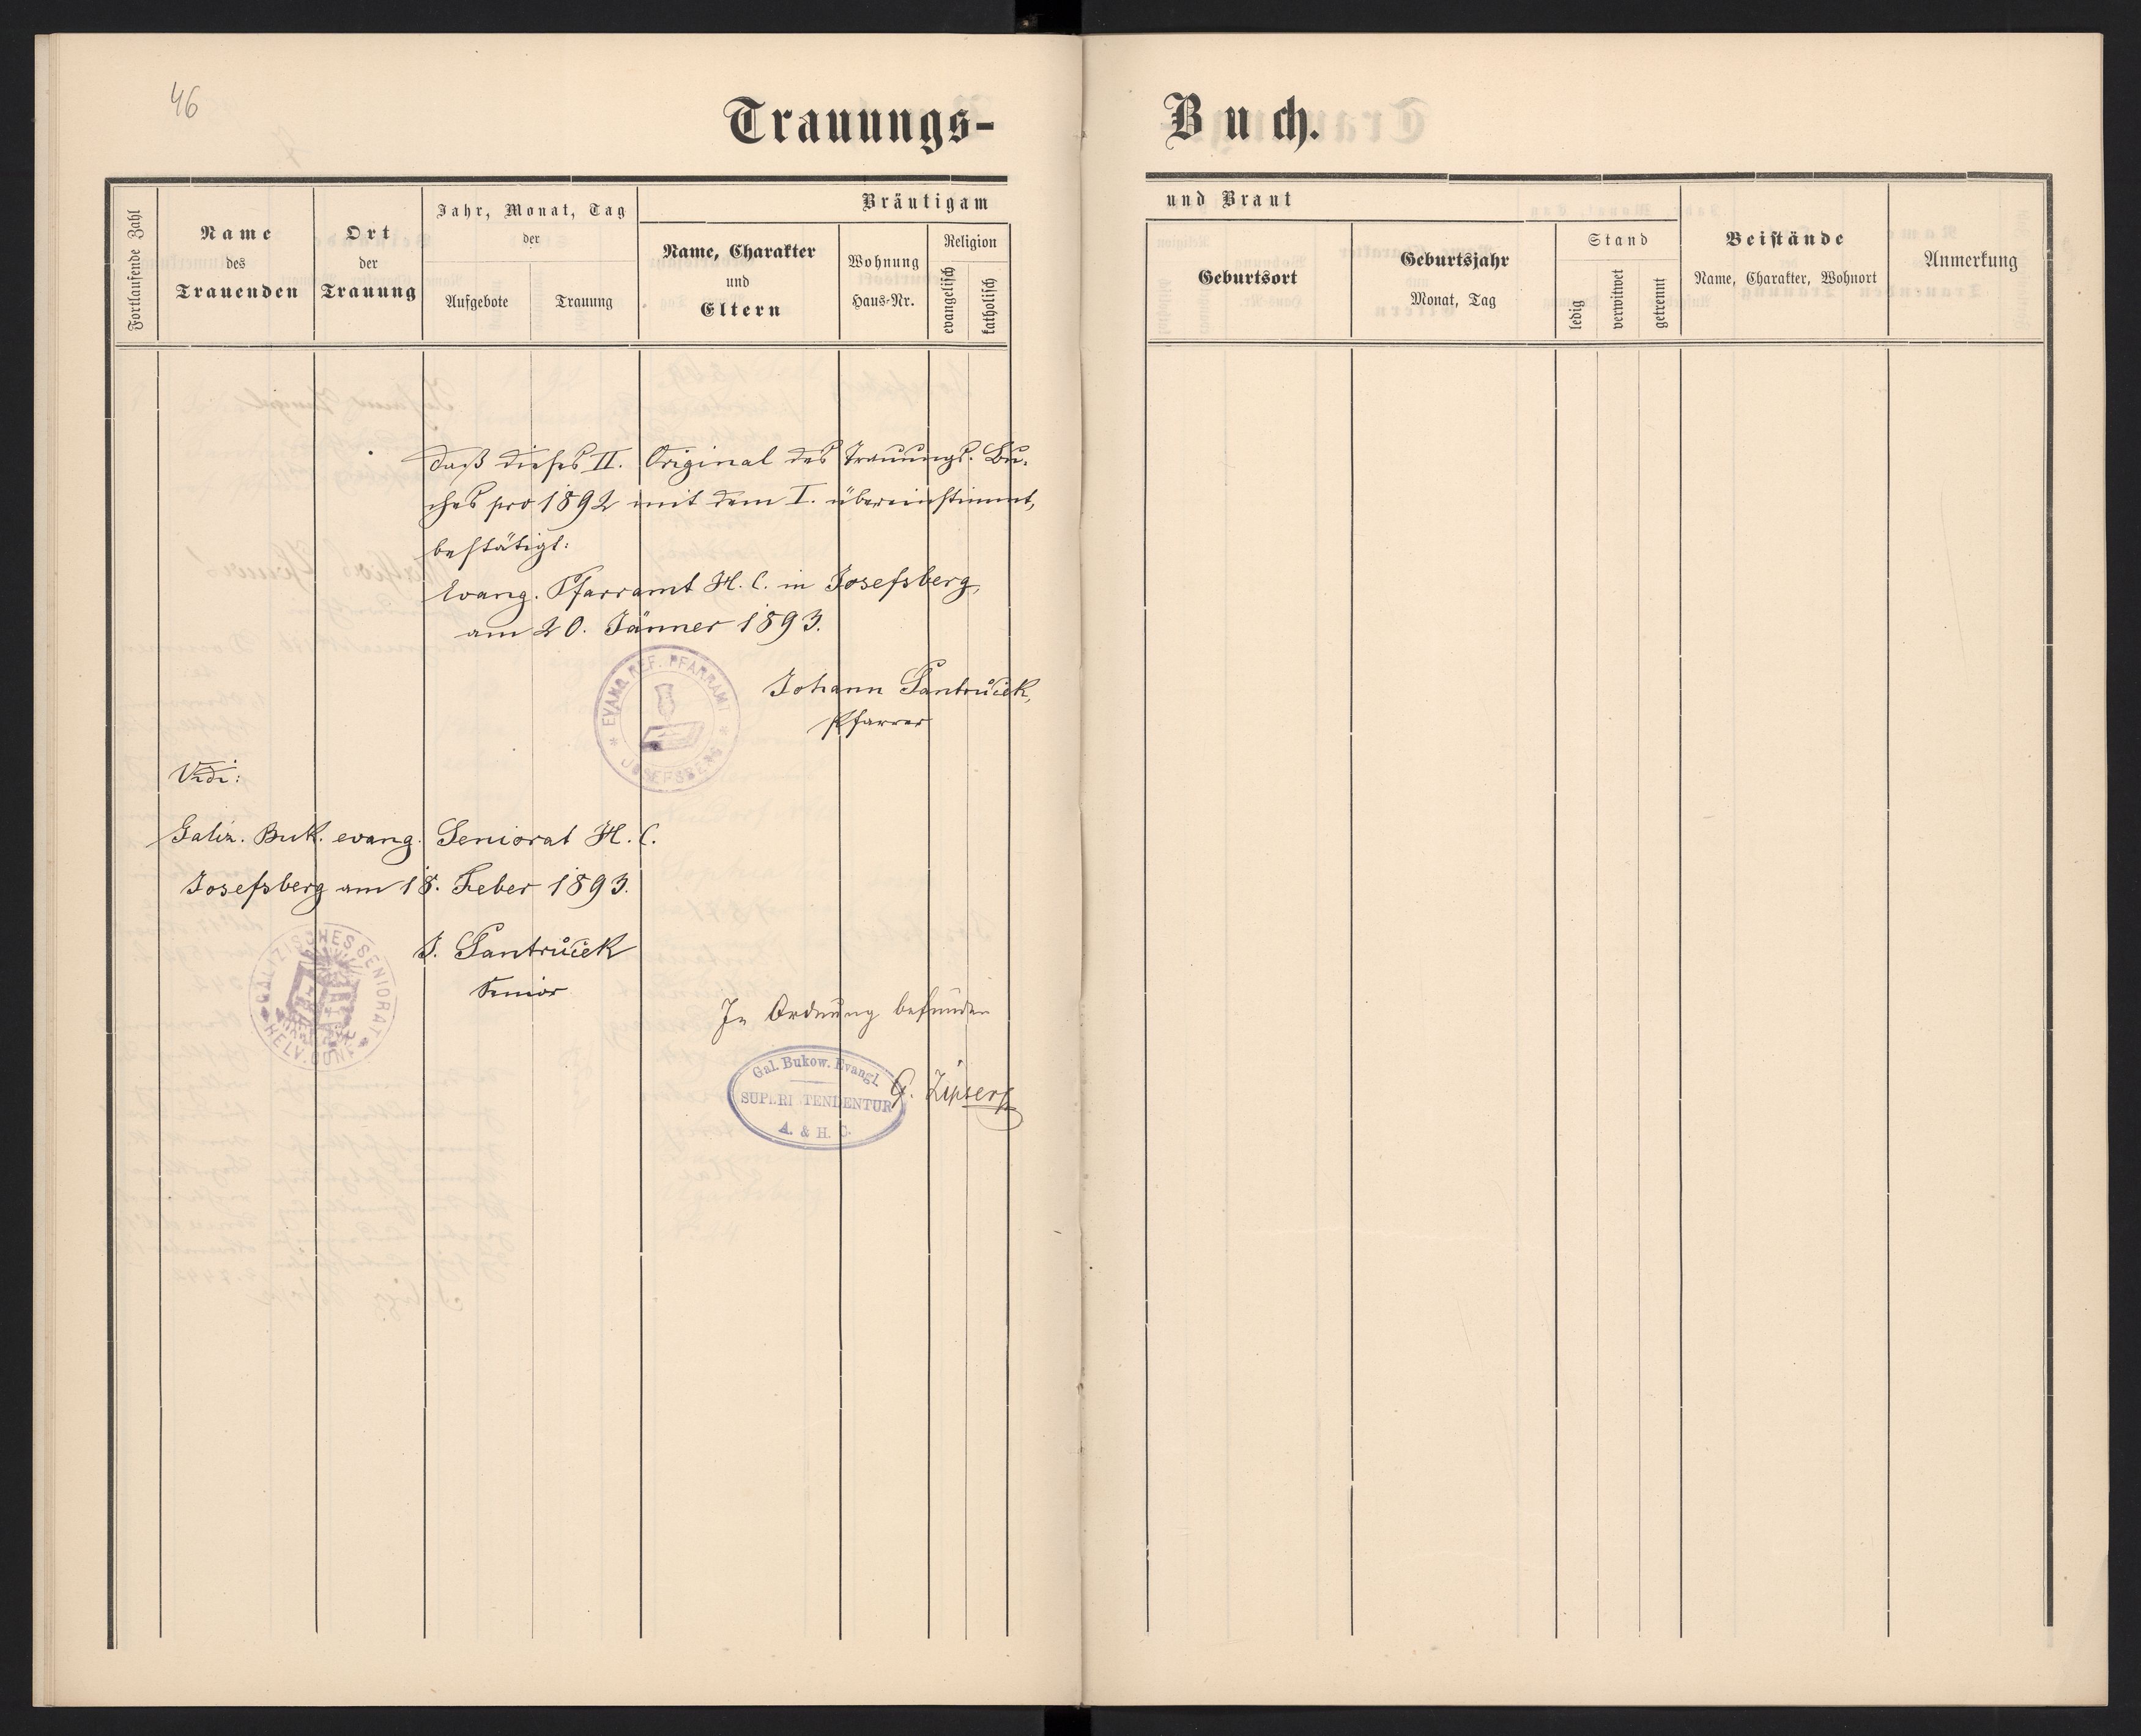 46
Trauungs-
Buch.
Fortlaufende Zahl
Name
des
Trauenden
Ort
der
Trauung
Jahr, Monat, Tag
der
Aufgebote
Trauung
Bräutigam
Name, Charakter
und
Eltern
Wohnung
Haus-Nr.
Religion
evangelisch
katholisch
und Braut
Geburtsort
Geburtsjahr
Monat, Tag
Stand
ledig
verwitwet
getrennt
Beistände
Name, Charakter, Wohnort
Anmerkung
Daß dieses II. Original des Trauungs-Bu-
ches pro 1892 mit dem I. übereinstimmt,
bestätigt:
Evang. Pfarramt H. C. in Josefsberg,
am 20. Jänner 1893.
EVANG. REF. PFARRAMT
* JOSEFSBERG *
Johann Pantrůček,
Pfarrer
Vidi:
Galiz. Buk. evang. Seniorat H. C.
Josefsberg am 18. Feber 1893.
GALIZISCHES SENIORAT
HELV. CONF.
J. Pantrůček
Senior
In Ordnung befunden
Gal. Bukow. Evangl.
SUPERINTENDENTUR
A. & H. C.
G. Zipser